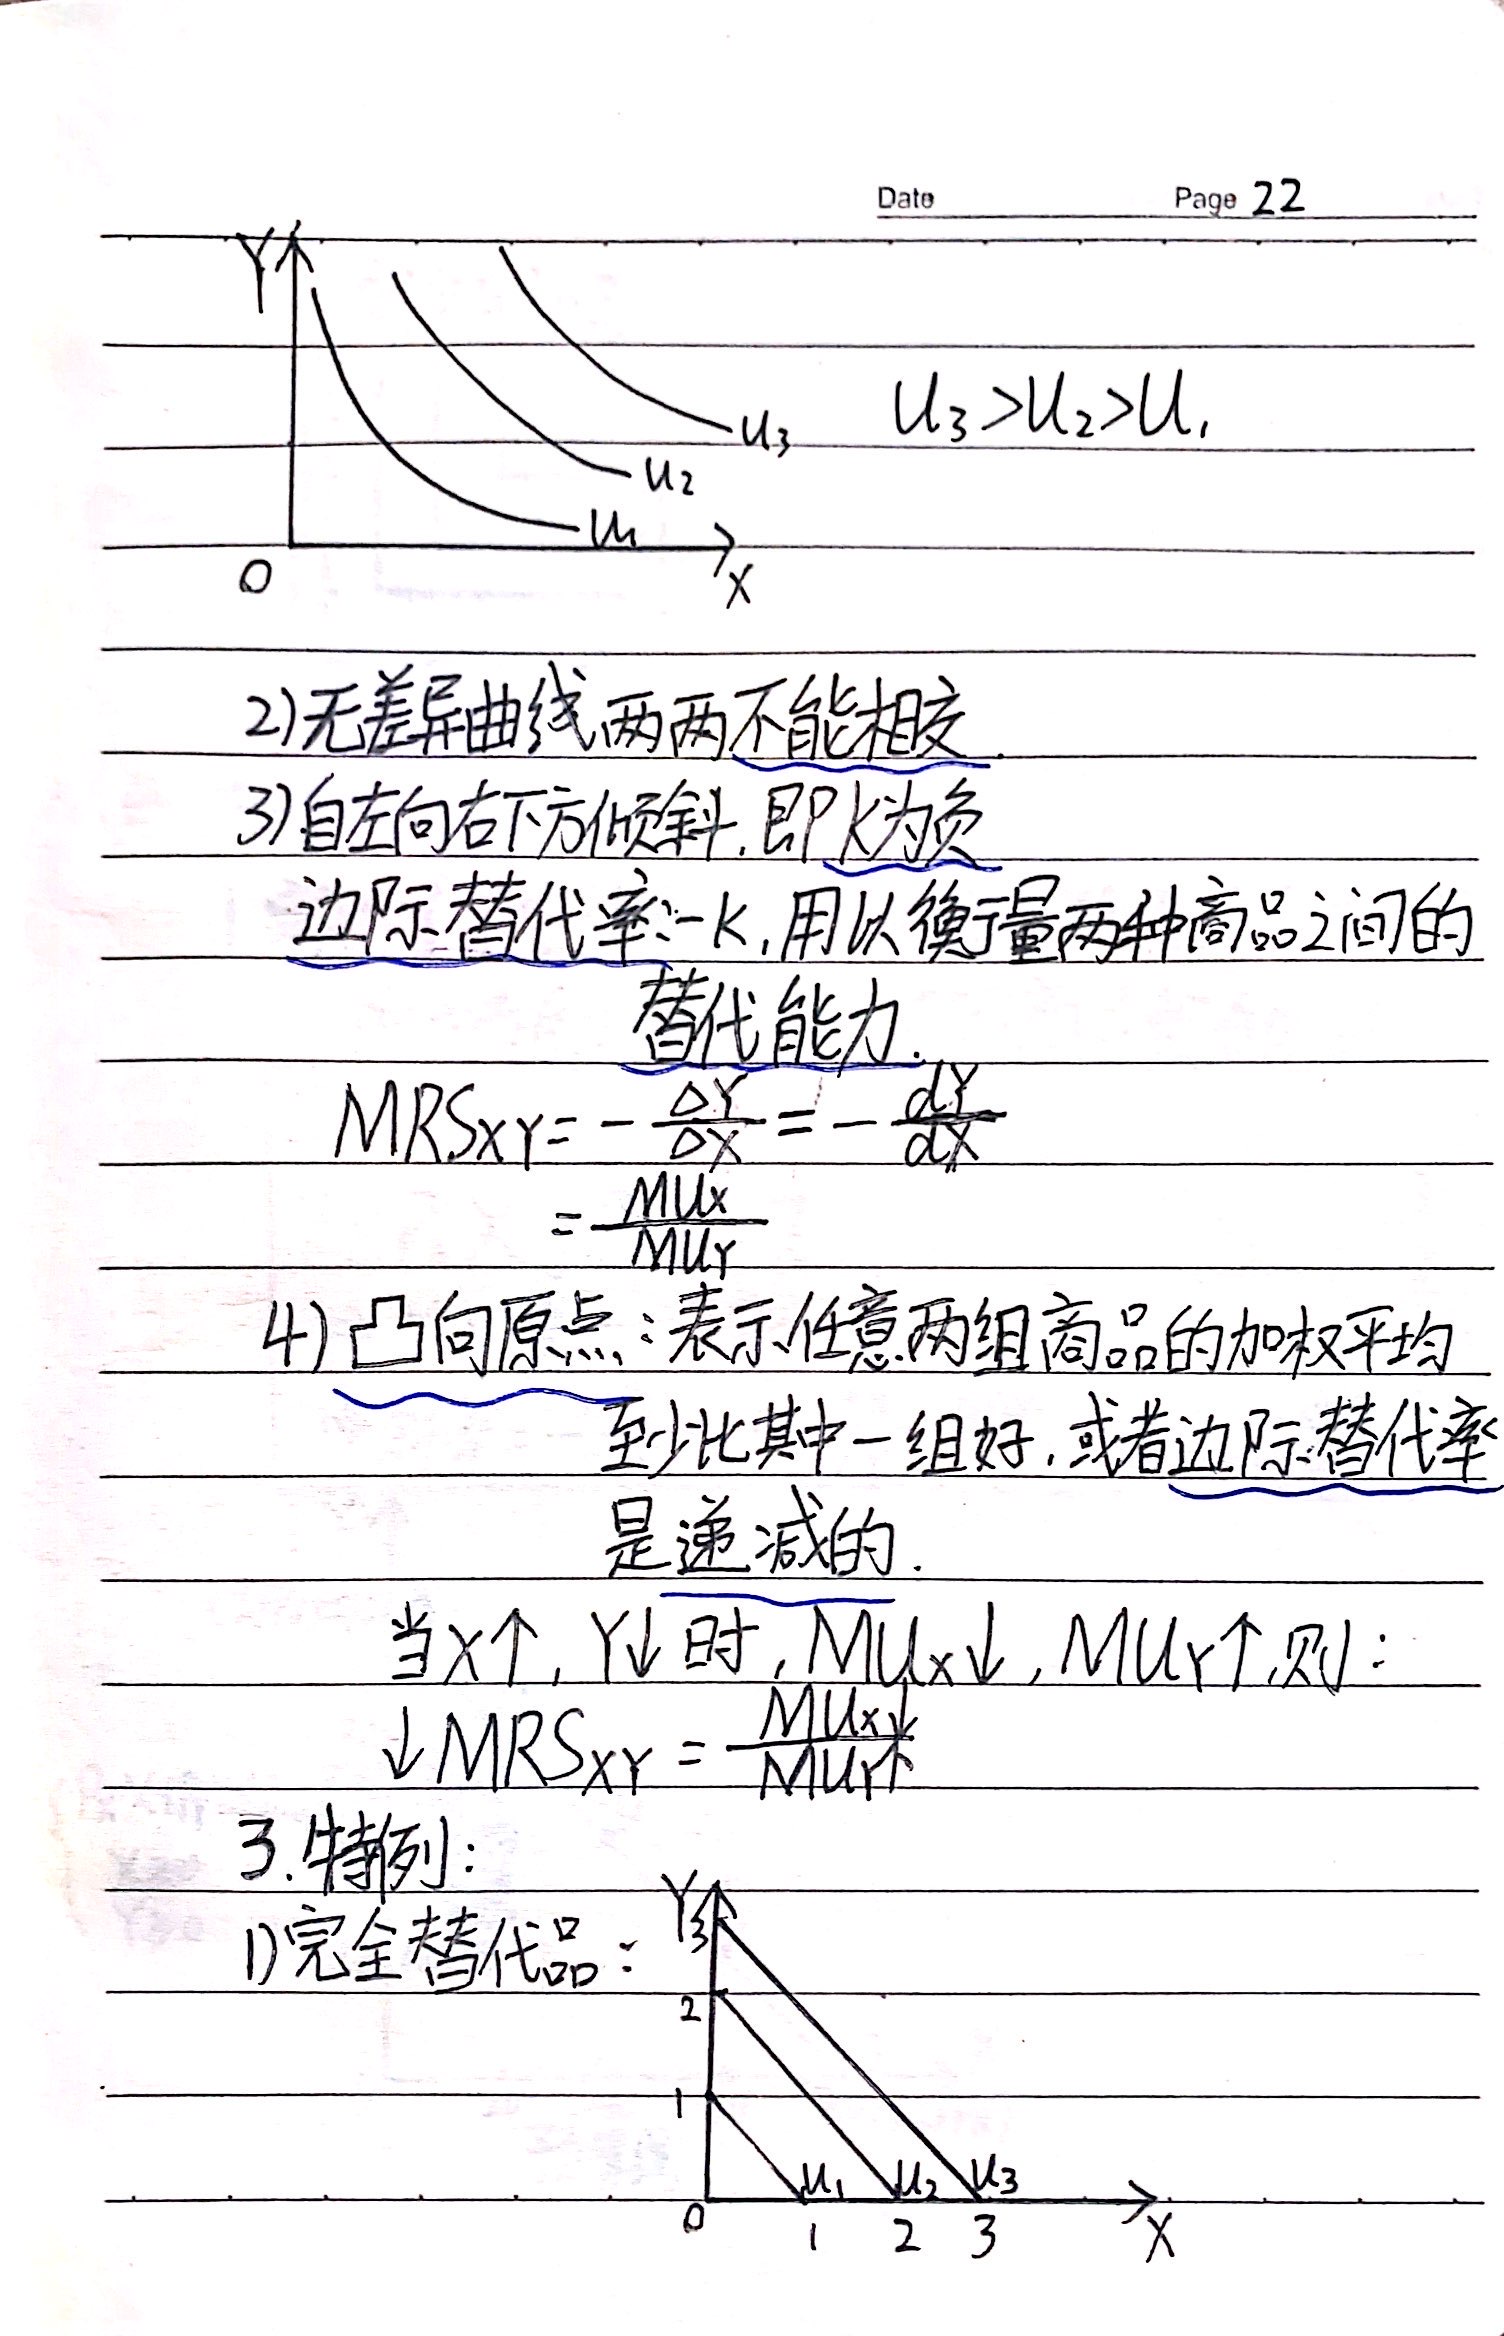 Date Page 22
Y
U3
U3>U2>U1
U2
U1
O X
2)无差异曲线两两不能相交.
3)自左向右下方倾斜.即K为负
边际替代率:-K,用以衡量两种商品之间的
替代能力.
MRSXY=-ΔY/ΔX=-dY/dX
=MUX/MUY
4)凸向原点:表示任意两组商品的加权平均
至少比其中一组好.或者边际替代率
是递减的.
当X↑,Y↓时,MUX↓,MUY↑,则:
↓MRSXY=MUX↓/MUY↑
3.特例:
1)完全替代品:
Y
3
2
1
U1 U2 U3
0 1 2 3 X